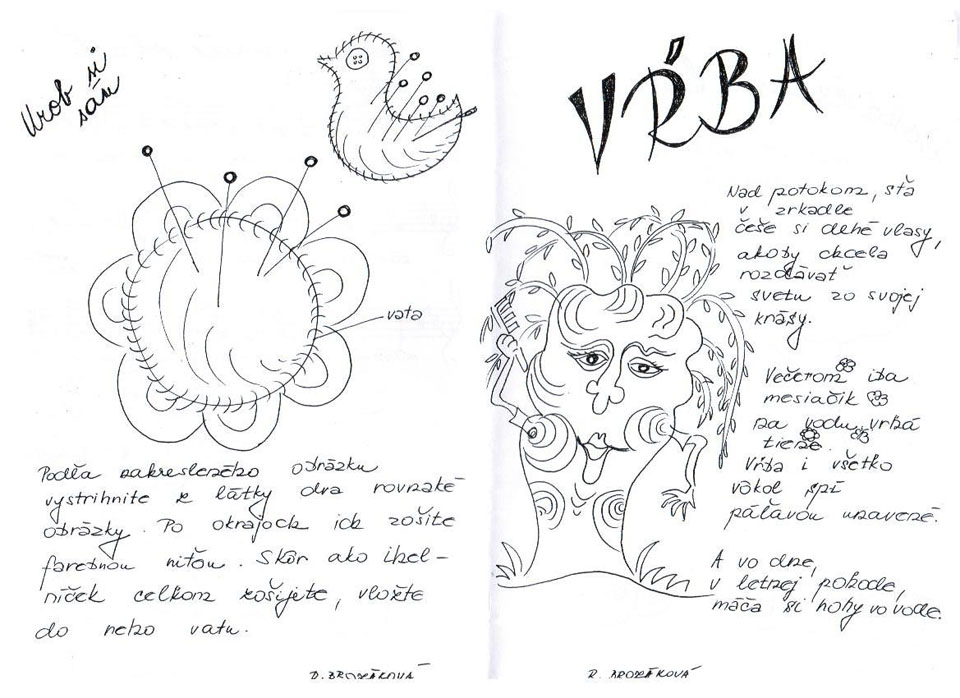 Urob si
sám
vata
Podľa nakresleného obrázku
vystrihnite z látky dva rovnaké
obrázky. Po okrajoch ich zošite
farebnou niťou. Skôr ako ihel-
níček celkom zošijete, vložte
do neho vatu.
VŔBA
Nad potokom, sťa
v zrkadle
češe si dlhé vlasy,
akoby chcela
rozdávať
svetu zo svojej
krásy.
Večerom iba
mesiačik
na vodu vrhá
tiene.
Vŕba i všetko
vôkol spí
páľavou unavené.
A vo dne,
v letnej pohode,
máča si nohy vo vode.